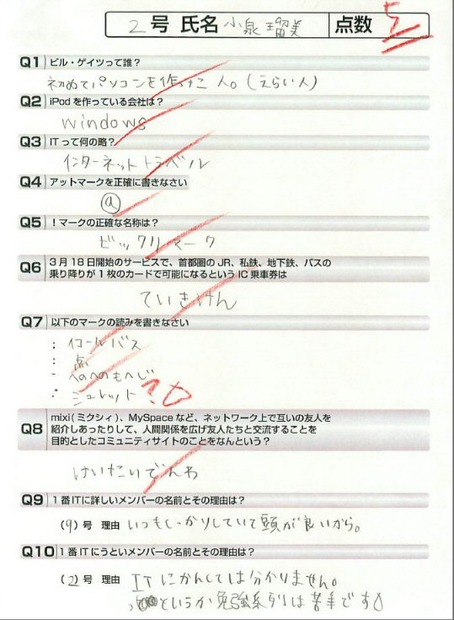 2号 氏名 小泉瑠美 点数 5
Q1 ビル・ゲイツって誰?
初めてパソコンを作った人。(えらい人)
Q2 iPodを作っている会社は?
windows
Q3 ITって何の略?
インターネットトラベル
Q4 アットマークを正確に書きなさい
@
Q5 !マークの正確な名称は?
ビックリマーク
Q6 3月18日開始のサービスで、首都圏のJR、私鉄、地下鉄、バスの
乗り降りが1枚のカードで可能になるというIC乗車券は
ていきけん
Q7 以下のマークの読みを書きなさい
; イコールバス
: 点
~ へのへのもへじ
シュレット
Q8 mixi(ミクシィ)、MySpaceなど、ネットワーク上で互いの友人を
紹介しあったりして、人間関係を広げ友人たちと交流することを
目的としたコミュニティサイトのことをなんという?
けいたいでんわ
Q9 1番ITに詳しいメンバーの名前とその理由は?
(9)号 理由 いつもしっかりしていて頭が良いから。
Q10 1番ITにうといメンバーの名前とその理由は?
(2)号 理由 ITにかんしては分かりません。
というか勉強系列は苦手です